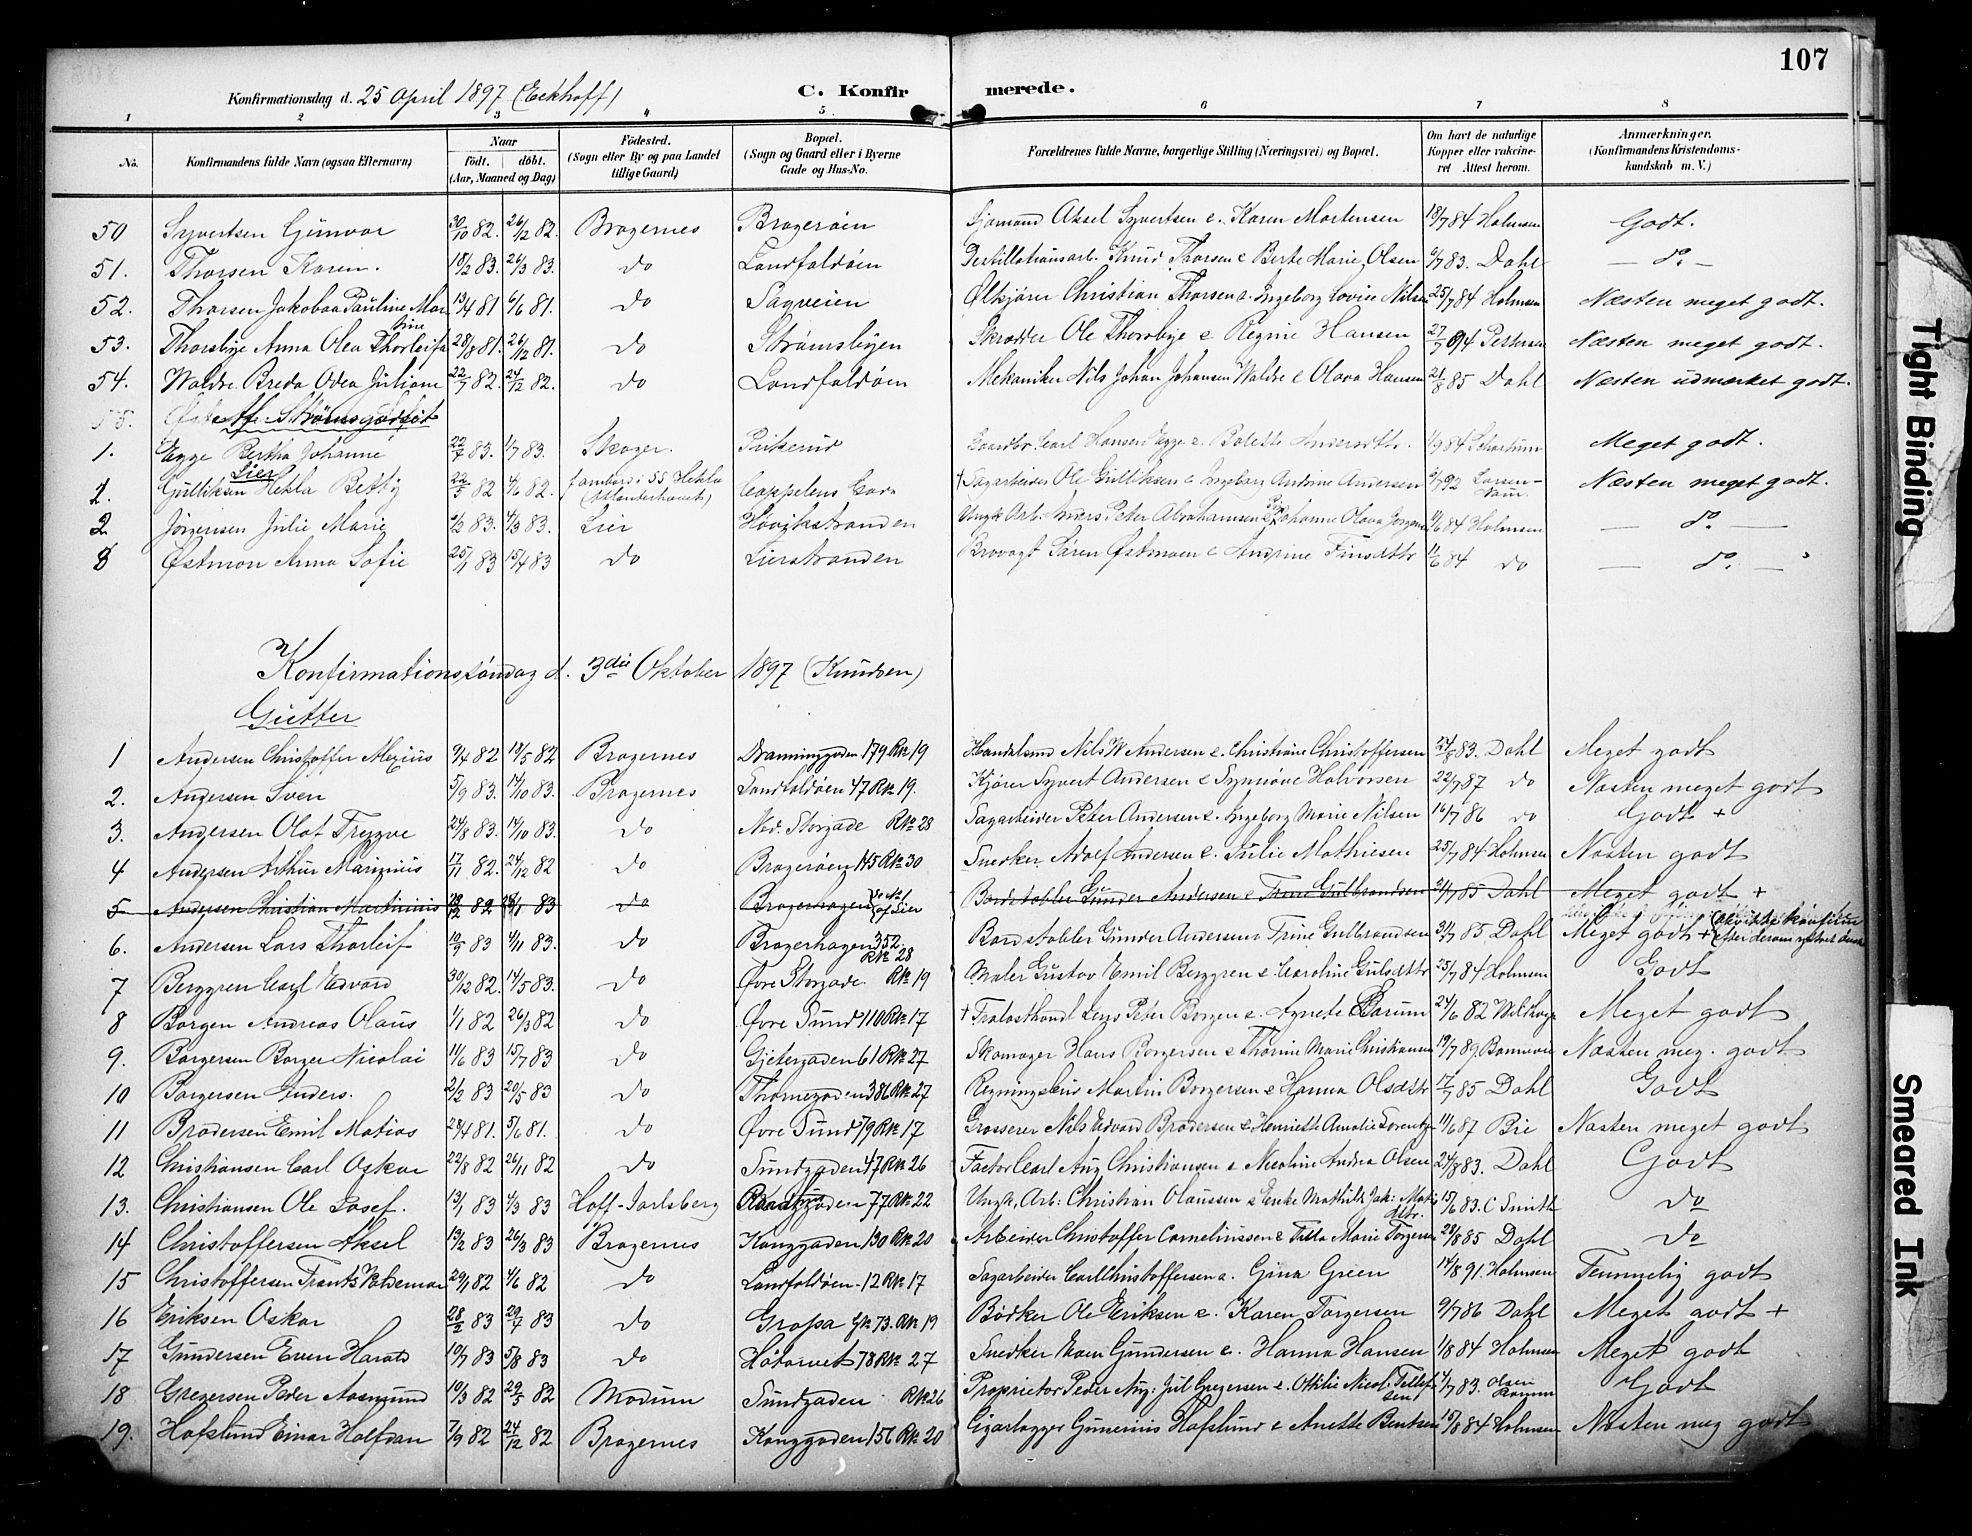 107
Konfirmationsdag d. 25 April 1897 (Eckhoff) C. Konfirmerede.
1 2 3 4 5 6 7 8
No. Konfirmandens fulde Navn (ogsaa Efternavn) Naar födt. döbt. (Aar, Maaned og Dag) Födested. (Sogn eller By og paa Landet tillige Gaard) Bopæl. (Sogn og Gaard eller i Byerne Gade og Hus-No. Forældrenes fulde Navne, borgerlige Stilling (Næringsvei) og Bopæl. Om havt de naturlige Kopper eller vakcineret Attest herom. Anmærkninger. (Konfirmandens Kristendomskundskab m. V.)
50 Syvertsen Gunvor 30/10 82. 26/12 82. Bragernes Bragerøen Sjømand Aksel Syvertsen e. Karen Mortensen 18/7 84 Holmsen Godt.
51. Thorsen Karen. 18/2 83. 26/3 83. do Landfaldøen Destillationsarb. Knud Thorsen e Berte Marie Olsen 6/7 83. Dahl — do. —
52. Thorsen Jakobaa Pauline Martine 13/4 81 6/6 81. do Sagveien Ølkjører Christian Thorsen e. Ingeborg Lovise Nilsen 25/7 84 Holmsen Næsten meget godt.
53. Thorsbye Anna Olea Thorleifa 28/8 81. 26/12 81. do Strømsbyen Skrædder Ole Thorsbye e Regine Hansen 27/7 94 Petersen Næsten meget godt.
54. Waldre Breda Odea Juliane 22/7 82. 24/12 82. do Landfaldøen Mekaniker Nils Johan Johansen Waldre e Olava Hansen 21/8 85 Dahl Næsten udmærket godt.
55. Af Strømsgodset
1. Egge Bertha Johanne 22/7 83. 1/7 83. Skoger. Gaardbr. Carl Hansen Egge e. Bolette Andersdtr. 1/9 84 Meget godt.
Lier
2. Gulliksen Hekla Betty 22/5 82 4/6 82. ombord i SS Hekla (Atlanterhavet) Cappelens † Sagarbeider Ole Gulliksen e Ingeborg Antine Andersen 5/7 92 Næsten meget godt.
2 Jørgensen Julie Marie 83. 4/3 83. Lier Høvikstranden Ungk Arb. Anders Peter Abrahamsen Pige Johanne Olava Jørgensen 11/6 84 Holmsen — do. —
8 Østmon Anna Sofie 25/1 83 15/4 83 do Lierstranden Brovagt Søren Østmoen e Andrine Finsdttr 11/6 84 do — do. —
Konfirmationssøndag d. 3die Oktober 1897 (Knudsen)
Gutter
1 Andersen Christoffer Alexius 9/4 82 18/5 82 Bragernes Dronninggaden 179 Rk 19 Handelsmd Nils W Andersen e. Christiane Christoffersen 24/8 83. Dahl Meget godt
2. Andersen Sven 5/9 83. 14/10 83. Bragernes Landfaldøen 47 Rk 19. Kjører Syvert Andersen e Synnøve Halvorsen 22/7 87 do Næsten meget godt
3. Andersen Olaf Trygve 24/8 83. 14/10 83. do Ned. Storgade Rk 28 Sagarbeider Peter Andersen e. Ingeborg Marie Nilsen 16/7 86 do Godt +
4 Andersen Arthur Marinius 17/11 82. 24/12 82 do Bragerøen 145 Rk 30 Snedker Adolf Andersen e. Julie Mathiesen 25/7 84 Holmsen Næsten godt
5 Andersen Christian Martinius 82 83 do Bragerhagen Bordstabler Gunder Andersen e Trine Gulbrandsen 3/7 85 Dahl Meget godt +
6. Andersen Lars Thorleif 10/9 83 4/11 83. do Bragerhagen 352 Rk 28 Bordstabler Gunder Andersen e Trine Gulbrandsen 3/7 85 Dahl Meget godt +
7 Berggren Carl Edvard 30/12 82. 14/5 83. do Øvre Storgade Rk 19 Maler Gustav Emil Berggren e. Caroline Gulsdttr 25/7 84 Holmsen Godt
8 Borgen Andreas Olaus 1/1 82 26/3 82 do Øvre Sund 110 Rk 17 † Trælasthandl Lars Peter Borgen e. Agnete Bærum 24/6 82 Meget godt
9. Borgersen Borger Nicolai 11/6 83 15/7 83 do Gjetergaden 61 Rk 27 Skomager Hans Borgersen e Thorine Marie Christiansen 19/7 89 Næsten meg. godt
10 Borgersen Anders. 2/2 83 20/5 83 do Thornegaden 386 Rk 27 Martin Borgersen e Hanna Olsdttr 17/7 85 Dahl Godt
11 Brodersen Emil Matias 28/4 81. 5/6 81. do Øvre Sund 79 Rk 17 Grosserer Nils Edvard Brodersen e. Henriette Amalie Lorentz 11/6 87 Bie Næsten meget godt
12 Christiansen Carl Oskar 22/8 82 26/11 82 do Sundgaden 47 Rk 26 Factor Carl Aug Christiansen e Nicoline Andrea Olsen 24/8 83. Dahl Godt
13. Christiansen Ole Josef. 13/1 83 4/3 83 Hoff-Jarlsberg 77 Rk 22 Ungk. Arb: Christian Olaussen e Enke Mathilde Jak: Mat: dttr. 15/6 83. C Smith do
14 Christoffersen Aksel 13/2 83 26/3 83 Bragernes Konggaden 130 Rk 20 Arbeider Christoffer Corneliussen e Tilla Marie Torgersen 28/8 85 Dahl do
15 Christoffersen Frants Valdemar 29/1 82 4/6 82 do Landfaldøen 12 Rk 17 Sagarbeider Carl Christoffersen e. Gina Green 14/8 91. Holmsen Temmelig godt
16 Eriksen Oskar 28/2 83 29/7 83 do Grossa Gk 73. Rk 19 Bødker Ole Eriksen e. Karen Torgersen 9/7 86 Dahl Meget godt +
17 Gundersen Even Harald 10/7 83 5/8 83 do Høtorvet 78 Rk 27 Snedker Even Gundersen e. Hanna Hansen 1/8 84 Holmsen Meget godt
18 Gregersen Peder Aasmund 10/3 82 29/5 82 Modum Sundgaden Rk 26 Proprietor Peder Aug: Jul Gregersen e. Otilie Nicol. Tellefsen 7/7 83. Olsen Godt
19. Hafslund Einar Halfdan 7/9 82 24/12 82 Bragernes Konggaden 156 Rk 20 Cigarlægger Gunerius Hafslund e Anette Bentsen 15/8 84 Holmsen Næsten meg godt
Tight Binding
Smeared Ink